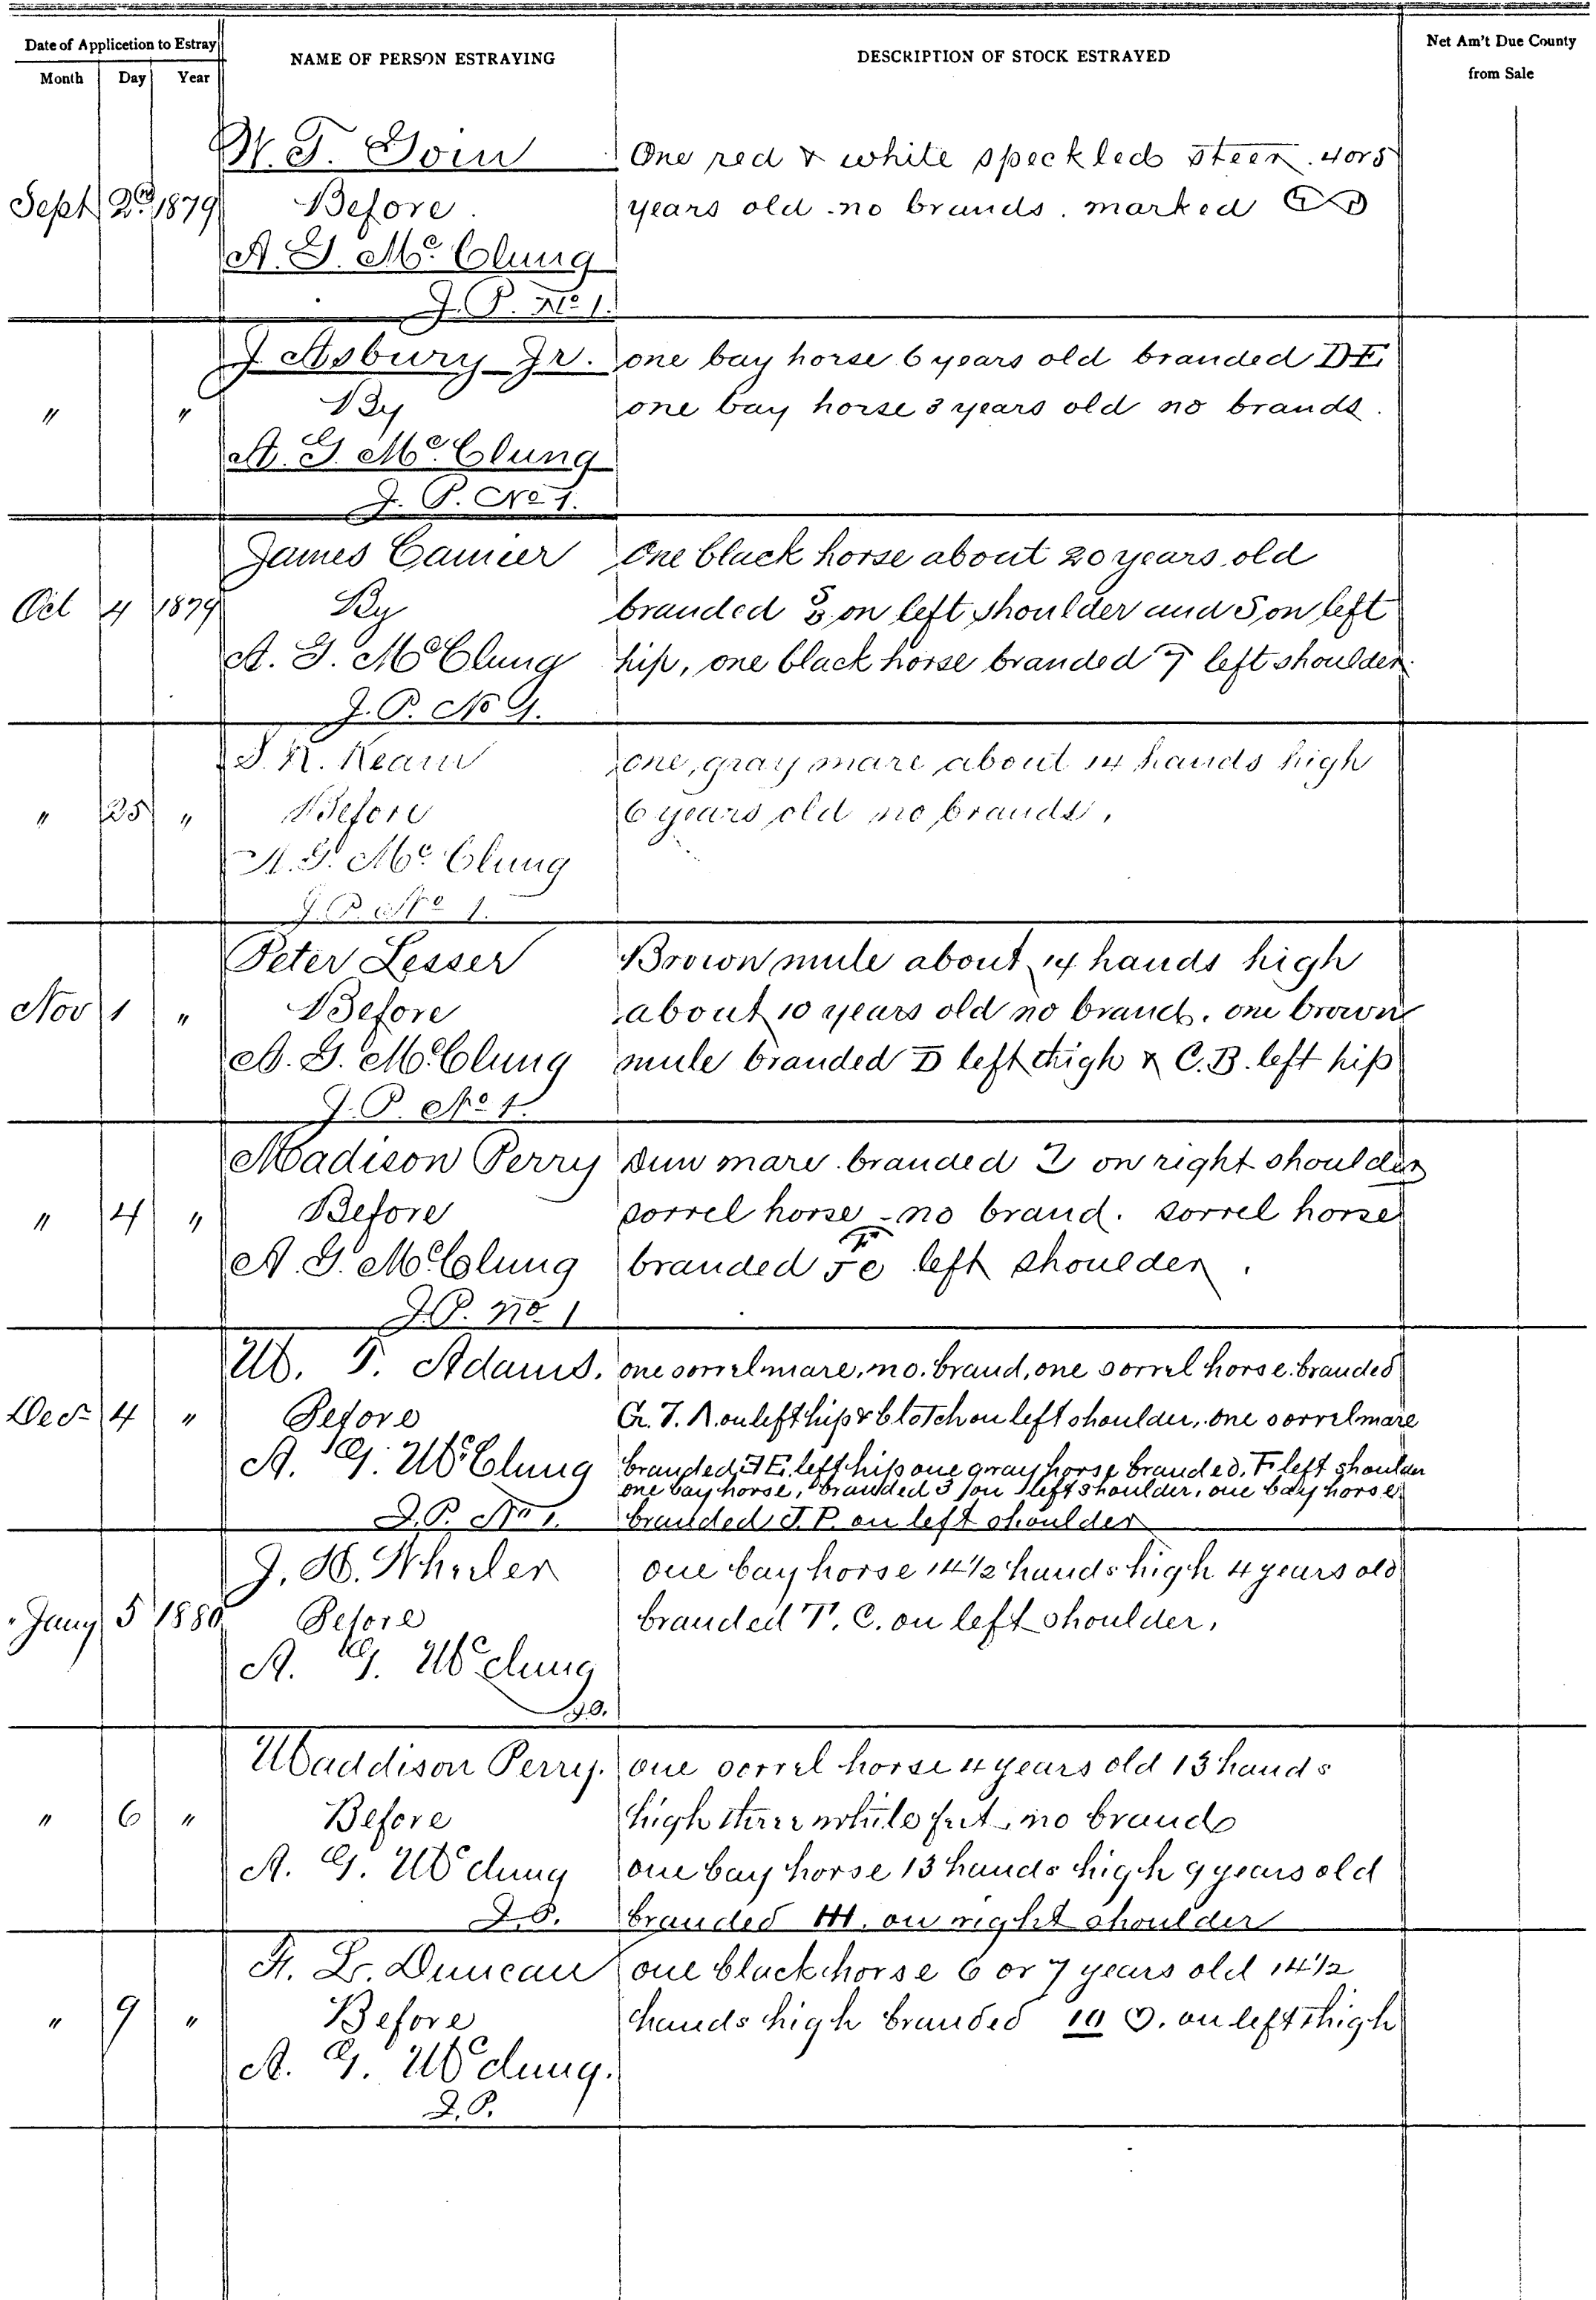 Date of Applicetion to Estray
NAME OF PERSON ESTRAYING
DESCRIPTION OF STOCK ESTRAYED
Net Am't Due County
from Sale
Month Day Year
Sept 2nd 1879
W. T. Goin
Before
A. G. McClung
J. P. No 1.
One red & white speckled steer. 4 or 5
years old no brands. marked
" "
J. Asbury Jr.
By
A. G. McClung
J. P. No 1.
one bay horse 6 years old branded DE
one bay horse 3 years old no brands.
Oct 4 1879
James
By
A. G. McClung
J. P. No 1.
One black horse about 20 years old
branded on left shoulder and S on left
hip, one black horse branded 7 left shoulder
" 25 "
Before
A. G. McClung
J. P. No 1.
one, gray mare about 14 hands high
6 years old no brands,
Nov 1 "
Peter Lesser
Before
A. G. McClung
J. P. No 1.
Brown mule about 14 hands high
about 10 years old no brands. one brown
mule branded D left thigh & C. B. left hip
" 4 "
Madison Perry
Before
A. G. McClung
J. P. No. 1
Dun mare. branded 2 on right shoulder
sorrel horse - no brand. sorrel horse
branded left shoulder.
Decr 4 "
T. Adams.
Before
A. G. McClung
J. P. No 1.
one sorrel mare, no. brand, one sorrel horse. branded
on left hip & blotch on left shoulder, one sorrel mare
branded left hip one gray horse branded. left shoulder
one bay horse, branded on left shoulder, one bay horse
branded J. P. on left shoulder
Jany 5 1880
J. H. Wheeler
Before
A. G. McClung
J.P.
one bay horse 14 1/2 hands high 4 years old
branded T. C. on left shoulder,
" 6 "
Maddison Perry.
Before
A. G. McClung
J. P.
one sorrel horse 4 years old 13 hands
high white feet no brands
one bay horse 13 hands high 9 years old
branded M. on right shoulder
" 9 "
H. L. Duncan
Before
A. G. McClung.
J. P.
one black horse 6 or 7 years old 14 1/2
hands high branded on left thigh